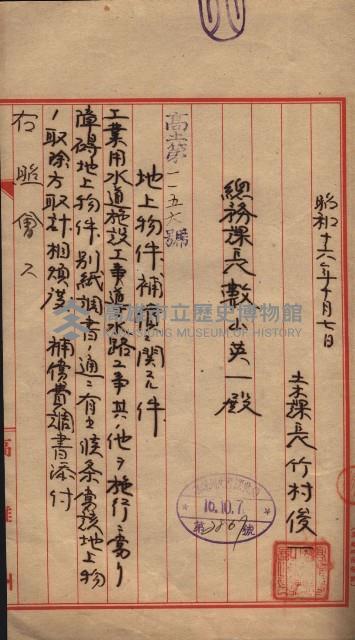 昭和十六年十月七日
土木課長竹村俊
總務課長數山英一殿
高土第一一五六號
地上物件補償ニ關スル件
工業用水道施設工事道水路工事其ノ他ヲ施行ニ當リ
障碍地上物件別紙調書ノ通ニ有之候条當該地上物
ノ取除方取計相煩度 補償費調書添付
右照會ス
16.10.7
第2869號
高雄市立歷史博物館
KAOHSIUNG MUSEUM OF HISTORY
高雄州